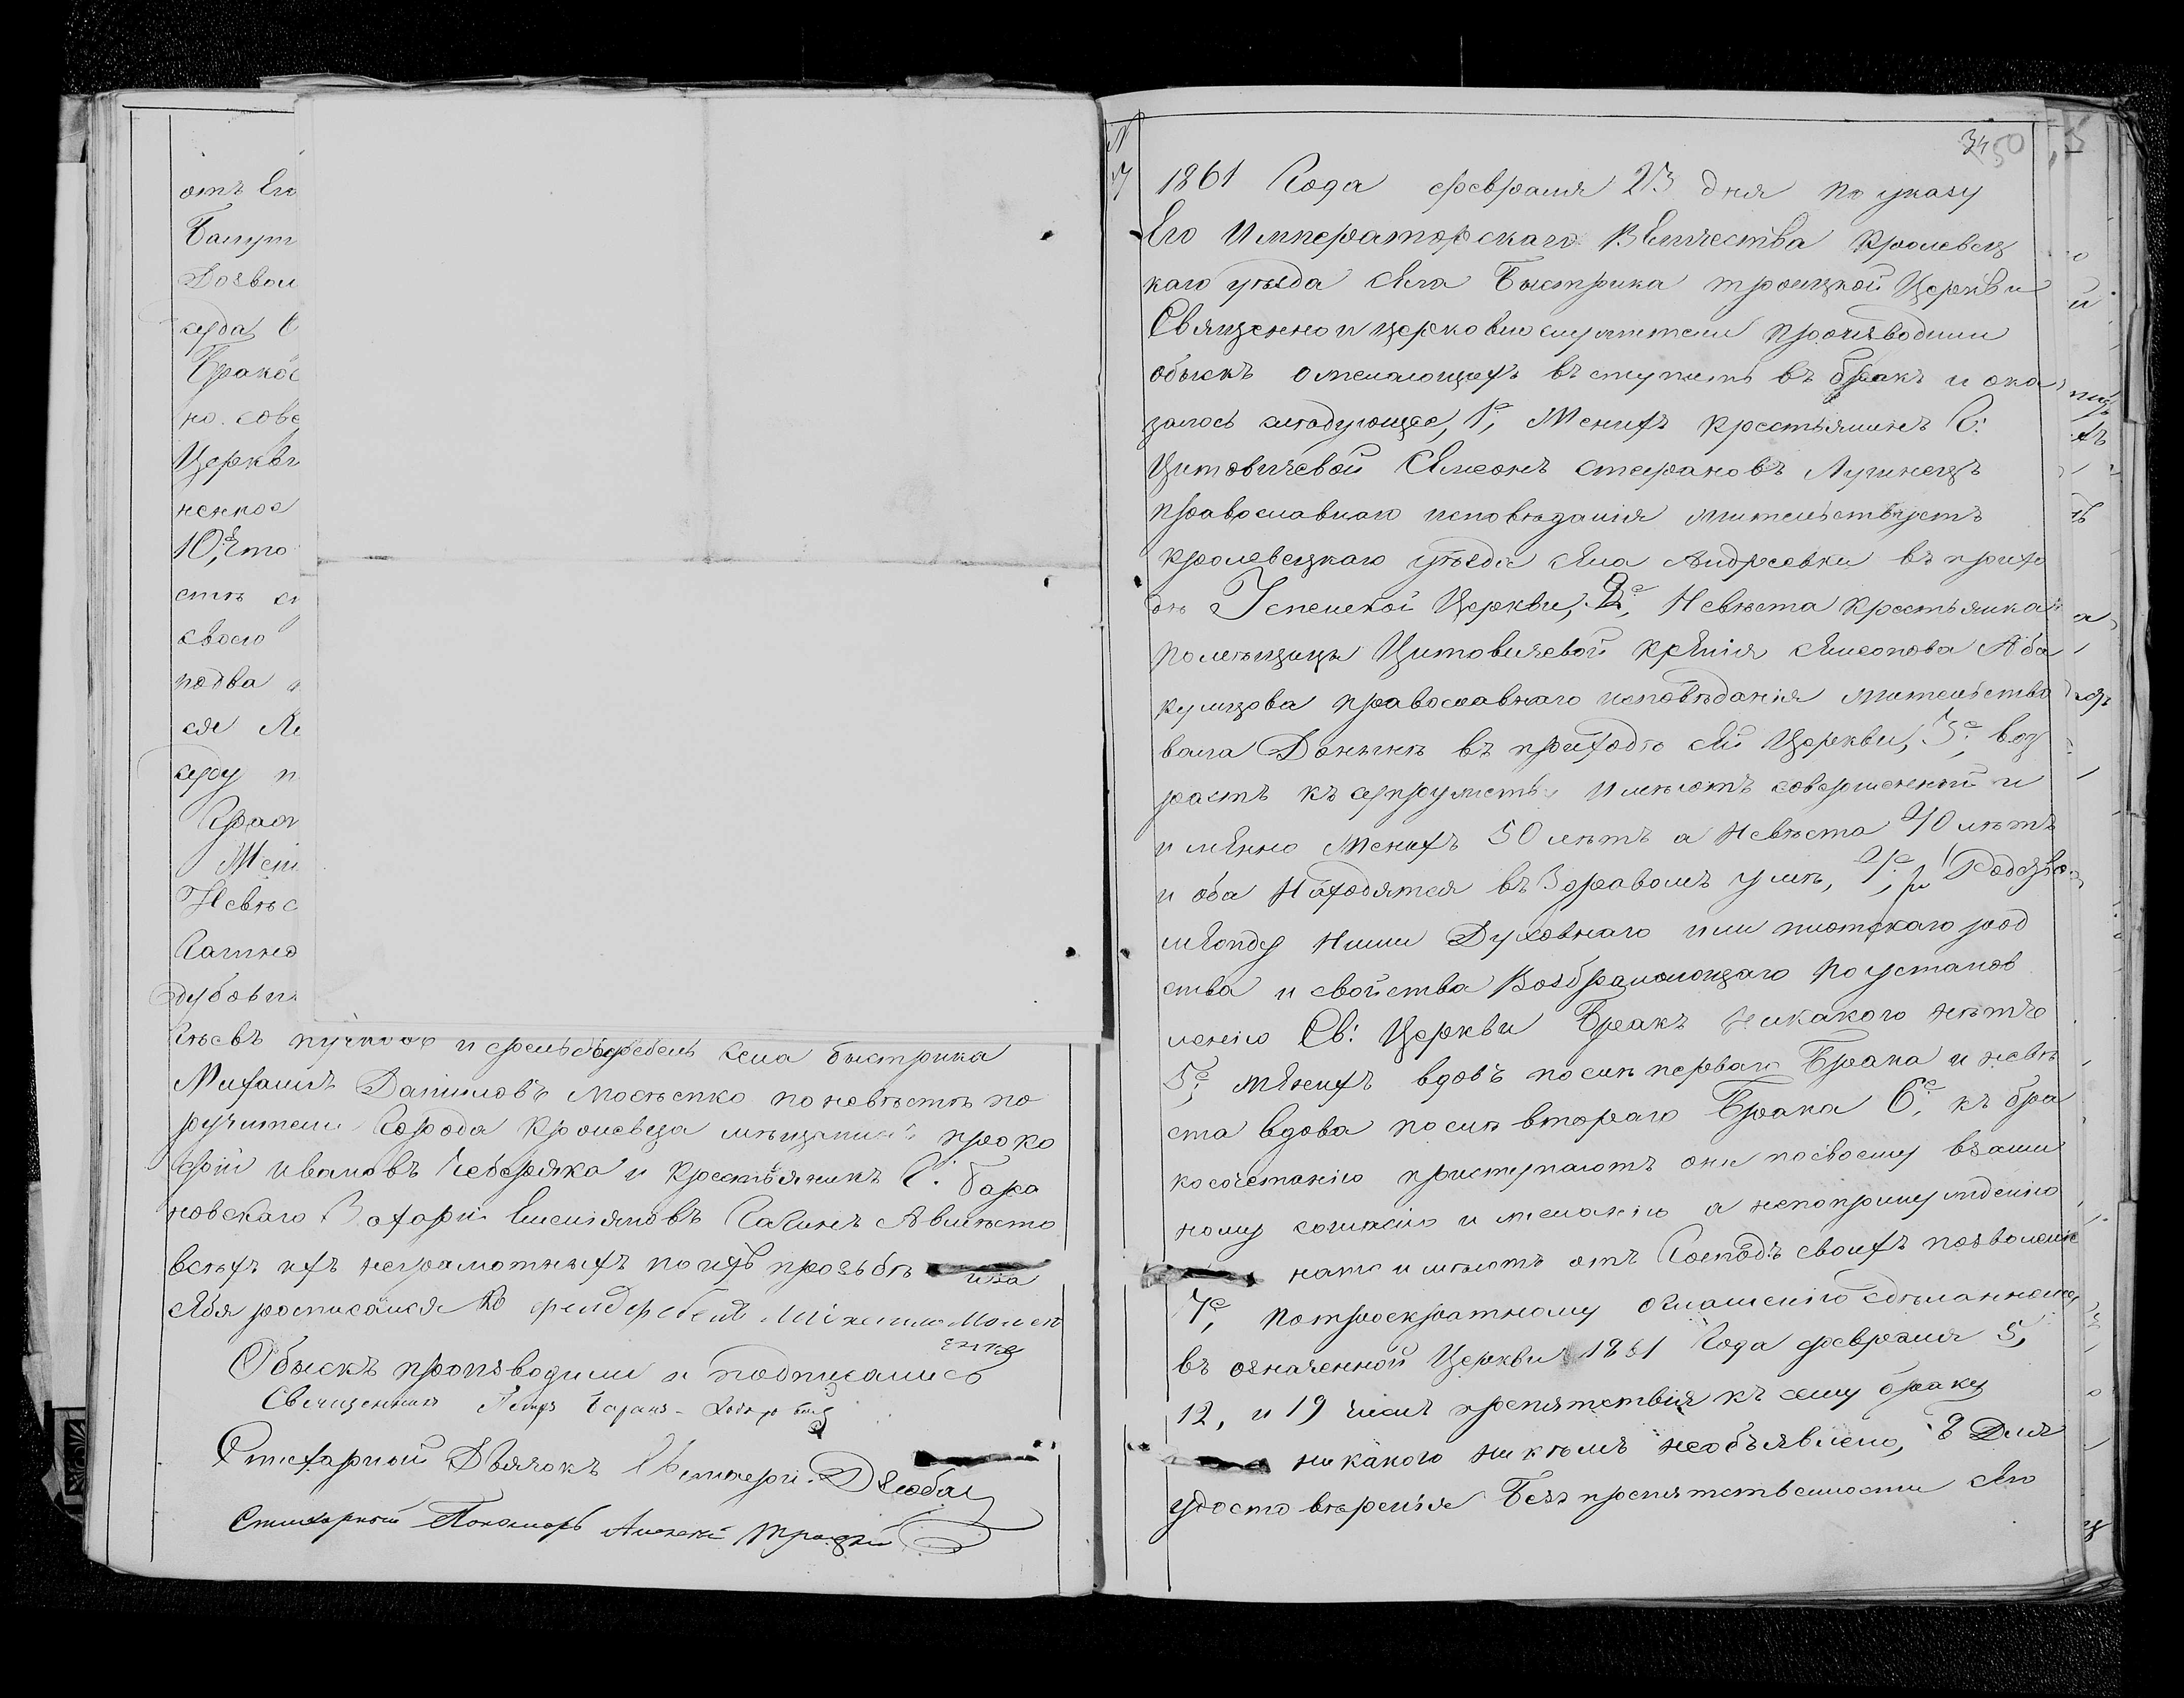 отъ Его
Багут
Дозвол
суда С
Бракос
но. сове
Церкви
ненное
10,е что
сть си
своего
подва
ся Не
суду п
Граф
Жени
Невѣс
Салпно
дубови
и фельдфебель села быстрика
Михаилъ Даниловъ Мосѣенко по невѣстѣ по
ручители Города Кролевца мѣщанинъ проко
фій Ивановъ Чеберяка и крестьянинъ Г: бара
новскаго Захарій Емелiяновъ а вмѣсто
всѣхъ ихъ неграмотныхъ по ихъ прозьбѣ и за
себя росписался
Обыскъ производили и подписались
Священникъ Петръ
Стихарной Дьячокъ Дзюбан
Стихарный Пономарь Алексѣй Троцкій
N
7
3450
1861 Года февраля 23 дня по указу
Его Императорскаго ВЕличества Кролевец
каго уѣзда села Быстрика троицкой Церкви
Священно и церковно служители производили
обыскъ ожелающихъ въступить въ бракъ и ока
залось слѣдующее, 1е, Женихъ крестьянинъ Г:
Цитовичевой Симеонъ стефановъ Лучинецъ
православнаго исповѣданія жительствуетъ
кролевецкаго уѣзда села Андреевки въ прихо
дѣ Успенской Церкви, 2е, Невѣста крестьянка
помѣщицы Цитовичевой Семеонова Аба
кумцова православнаго исповѣданія жительство
вала Донынѣ въ приходѣ сей Церкви, 3е, воз
растъ къ супружеству Имѣютъ совершенный и
имЕнно женихъ 50 лѣтъ а невѣста 40 лѣтъ
и оба Находятся въ Здравомъ умѣ, 4е,
мЕжду ними Духовнаго или плотскаго род
ства и свойства Возбраняющаго по установ
ленію Св: Церкви Бракъ никакого нѣтъ
5е, жЕнихъ вдовъ послѣ перваго Брака и невѣ
ста вдова послѣ втораго Брака 6е, къ бра
косочетанію приступаютъ они посвоему взаим
ному согласію и желанію а непопринужденію
нато имѣютъ отъ Господъ своихъ позволеніе
7е, потроекратному оглашенію сдѣланному
въ означенной Церкви 1861 Года февраля 5,
12, и 19 числъ препятствія къ сему браку
никакого никѣмъ необъявлено, 8 Для
удостовѣренія Безпрепятственности сего